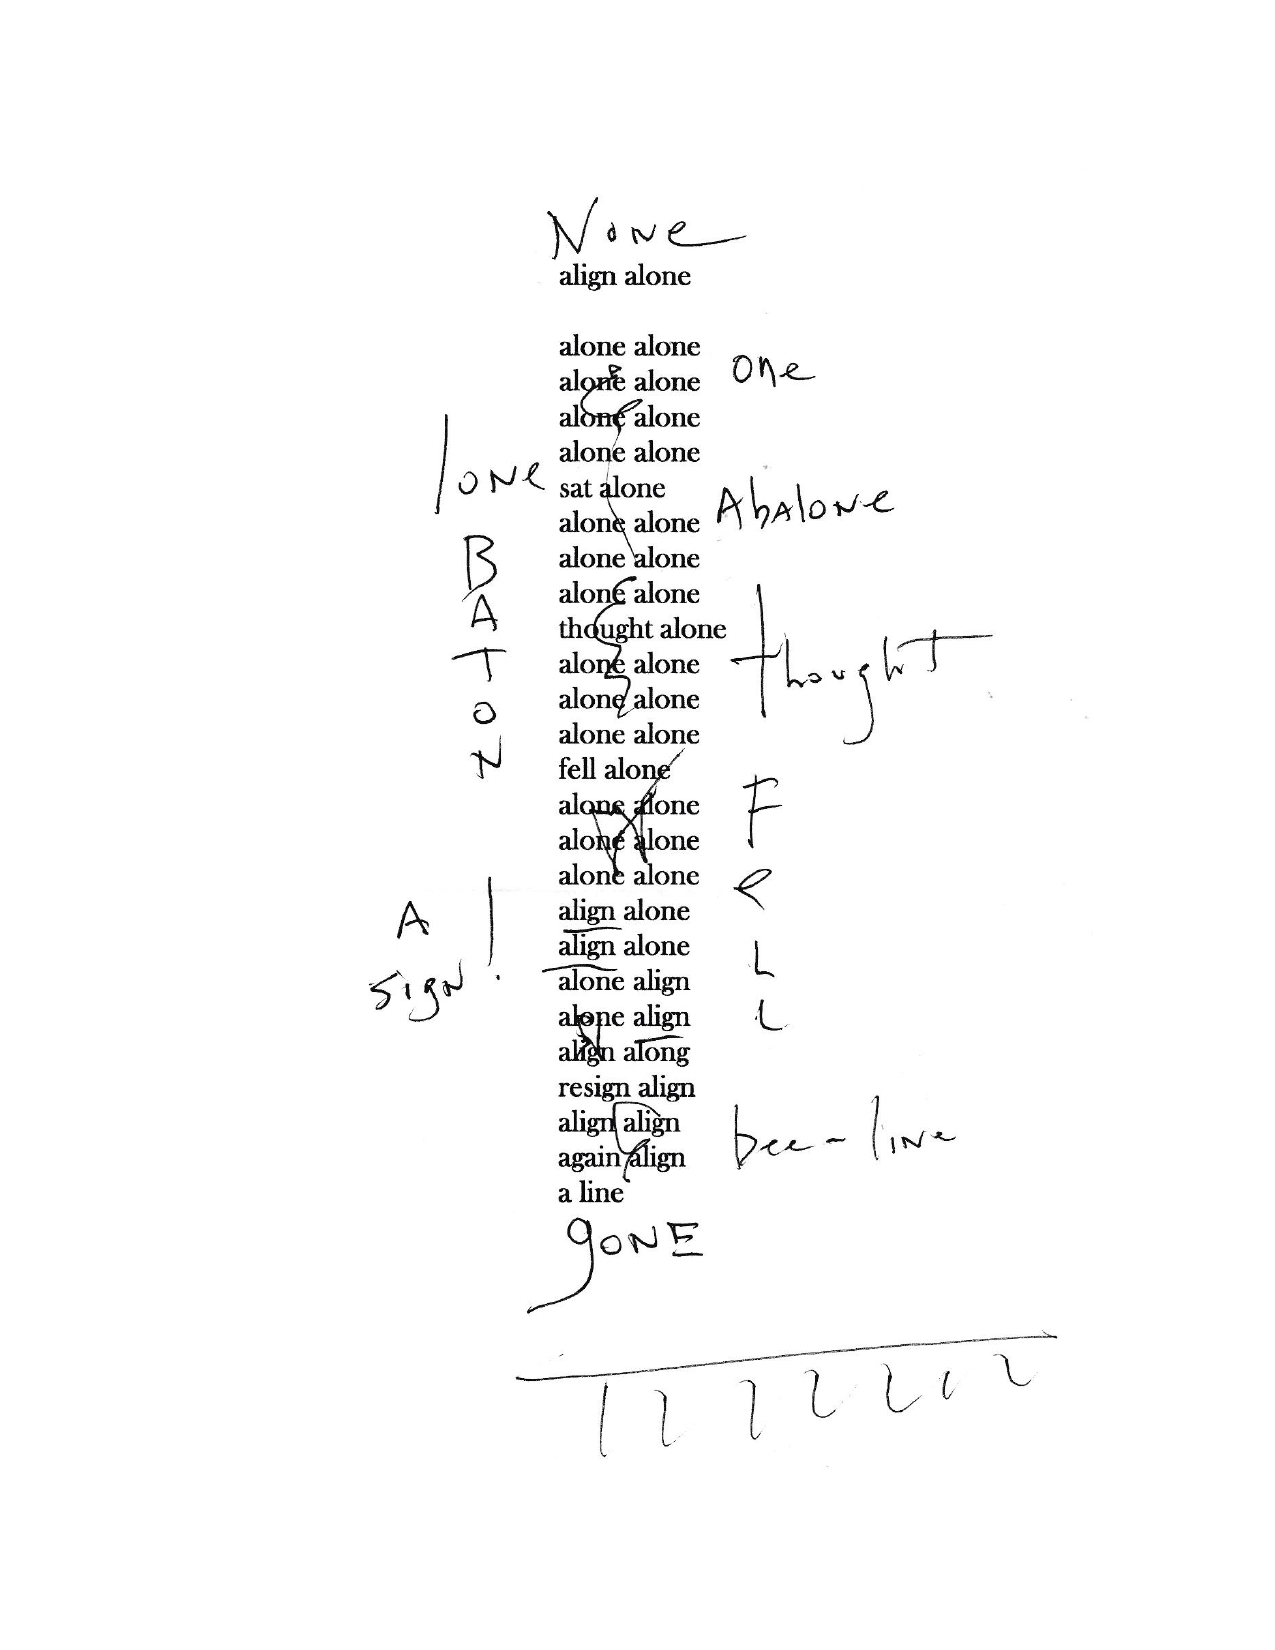 None
align alone
alone alone
alone alone one
alone alone
alone alone
lone sat alone Abalone
alone alone
BATON
alone alone
alone alone
thought alone
alone alone thought
alone alone
alone alone
fell alone
alone alone FeLL
alone alone
alone alone
align alone
A
align alone
sign!
alone align
alone align
align along
resign align
align align bee-line
again align
a line
gONE